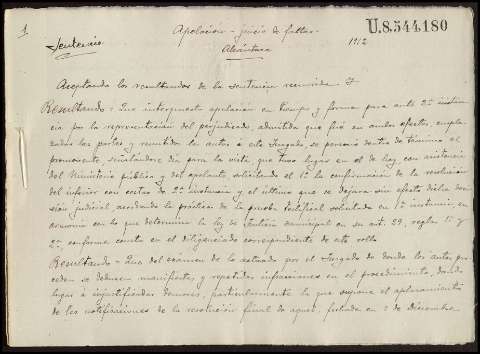 1
U.8.544.180
Apelación - juicio de faltas.
Sentencia
Alcántara
1912
Aceptando los resultandos de la sentencia recurrida. Y
Resultando = Que interpuesta apelación en tiempo y forma para ante 2ª instan-
cia por la representación del perjudicado, admitida que fué en ambos efectos, empla-
zadas las partes y remitidos los autos á este Juzgado, se personó dentro de término el
promovente, señalándose dia para la vista, que tuvo lugar en el de hoy con asistencia
del Ministerio público y del apelante solicitando el 1º la confirmación de la resolución
del inferior con costas de 2ª instancia y el último que se dejara sin efecto dicha deci-
sión judicial acordando la práctica de la prueba testifical solicitada en 1ª instancia, en
armonia con lo que determina la ley de Justicia municipal en su art. 29, reglas 1ª y
2ª, conforme consta en el diligenciado correspondiente de este rollo
Resultando = Que del exámen de lo actuado por el Juzgado de donde los autos pro-
ceden se deducen manifiestas y repetidas infracciones en el procedimiento, dando
lugar á injustificadas demoras, particularmente la que supone el aplazamiento
de las notificaciones de la resolución final de aquel, fechada en 2 de Diciembre